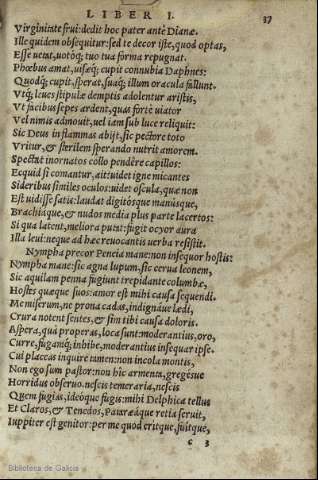 LIBER I. 37
Virginitate frui: dedit hoc pater antè Dianæ.
Ille quidem obsequitur: sed te decor iste, quod optas,
Esse uetat, uotoq́; tuo tua forma repugnat.
Phœbus amat, uisæq́; cupit connubia Daphnes:
Quodq́; cupit, sperat, suaq́; illum oracula fallunt.
Vtq́; leues stipulæ demptis adolentur aristis,
Vt facibus sepes ardent, quas fortè uiator
Vel nimis admouit, uel iam sub luce reliquit:
Sic Deus in flammas abijt, sic pectore toto
Vritur, & sterilem sperando nutrit amorem.
Spectat inornatos collo pendêre capillos:
Ecquid si comantur, ait: uidet igne micantes
Sideribus similes oculos: uidet oscula, quæ non
Est uidisse satis: laudat digitósque manúsque,
Brachiáque, & nudos media plus parte lacertos:
Si qua latent, meliora putat: fugit ocyor aura
Illa leui: neque ad hæc reuocantis uerba resistit.
Nympha precor Peneia mane: non insequor hostis:
Nympha mane: sic agna lupum, sic cerua leonem,
Sic aquilam penna fugiunt trepidante columbæ,
Hostes quæque suos: amor est mihi causa sequendi.
Me miserum, ne prona cadas, indignáue lædi,
Crura notent sentes, & sim tibi causa doloris.
Aspera, quà properas, loca sunt: moderantius, oro,
Curre, fugamq́; inhibe, moderantius insequar ipse.
Cui placeas inquire tamen: non incola montis,
Non ego sum pastor: non hîc armenta, gregésue
Horridus obseruo. nescis temeraria, nescis
Quem fugias, ideóque fugis: mihi Delphica tellus
Et Claros, & Tenedos, Pataræáque retia seruit,
Iuppiter est genitor: per me quod eritque, fuitque,
c 3
Biblioteca de Galicia